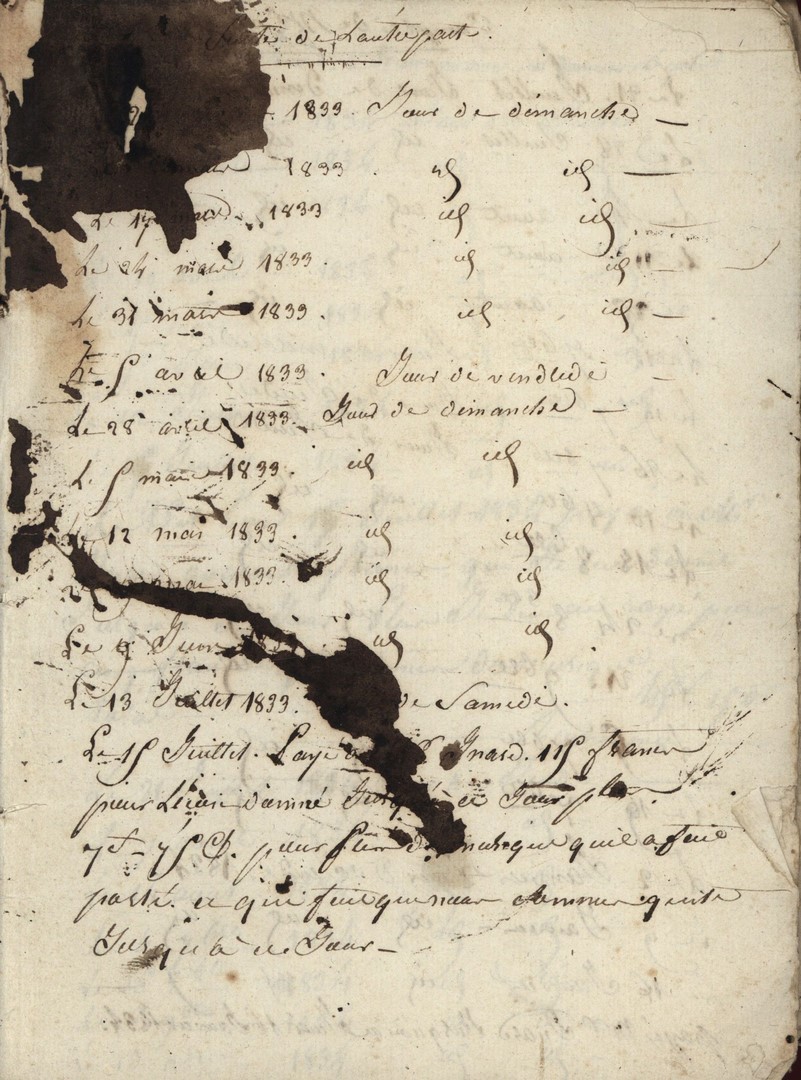 Suite de Lautrepart.
1833. Jour de dimanche —
mars 1833. id id —
Le 17 mars 1833 id id
Le 24 mars 1833. id id —
Le 31 mars 1833. id id —
Le 5 avril 1833. Jour de vendredi —
Le 28 avril 1833. Jour de dimanche —
Le 5 mai 1833. id id —
Le 12 mai 1833. id id
mai 1833. id id
Le 9 Juin id id
Le 13 Juillet 1833. de Samedi.
Le 15 Juillet. Payé 115 francs
pour ce Jour plus
7 f - 75 C. pour que quil a fait
porté. ce qui fait que nous sommes quitte
Jusqu'à ce Jour —